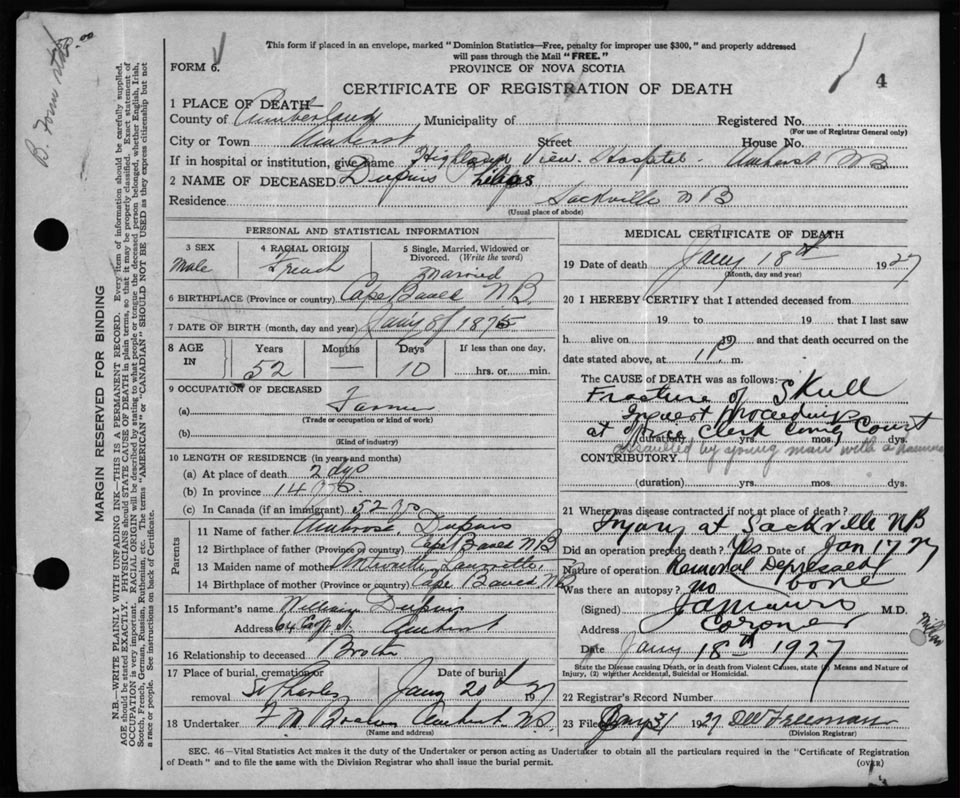 This form if placed in an envelope, marked "Dominion Statistics—Free, penalty for improper use $300," and properly addressed
will pass through the Mail "FREE."
FORM 6.
PROVINCE OF NOVA SCOTIA
4
CERTIFICATE OF REGISTRATION OF DEATH
1 PLACE OF DEATH
County of Cumberland Municipality of Registered No.
(For use of Registrar General only)
City or Town Amherst Street House No.
If in hospital or institution, give name Highland View Hospital - Amherst
2 NAME OF DECEASED Dupuis
Residence Sackville NB
(Usual place of abode)
PERSONAL AND STATISTICAL INFORMATION
3 SEX
Male
4 RACIAL ORIGIN
French
5 Single, Married, Widowed or
Divorced. (Write the word)
Married
6 BIRTHPLACE (Province or country) Cape Bauld NB
7 DATE OF BIRTH (month, day and year) Jan'y 8 1875
8 AGE IN
Years Months Days If less than one day,
52 — 10 hrs. or min.
9 OCCUPATION OF DECEASED
(a) Farmer
(Trade or occupation or kind of work)
(b)
(Kind of industry)
10 LENGTH OF RESIDENCE (in years and months)
(a) At place of death 2 dys
(b) In province 14
(c) In Canada (if an immigrant) 52
Parents
11 Name of father Dupuis
12 Birthplace of father (Province or country) Cape Bauld NB
13 Maiden name of mother
14 Birthplace of mother (Province or country) Cape Bauld NB
15 Informant's name William Dupuis
Address 64 St. Amherst
16 Relationship to deceased Brother
17 Place of burial, cremation or removal Date of burial
St Charles Jany 20th 1927
18 Undertaker Amherst NS
(Name and address)
MEDICAL CERTIFICATE OF DEATH
19 Date of death Jany 18th 1927
(Month, day and year)
20 I HEREBY CERTIFY that I attended deceased from
19 to 19 that I last saw
h alive on 19 and that death occurred on the
date stated above, at 1 P. m.
The CAUSE OF DEATH was as follows:
Fracture of Skull
Inquest proceedings
at office Clerk Court
(duration) yrs. mos. dys.
assaulted by young man with a hammer
CONTRIBUTORY
(duration) yrs. mos. dys.
21 Where was disease contracted if not at place of death?
Injury at Sackville NB
Did an operation precede death? Yes Date of Jan 17 27
Nature of operation Removal Depressed bone
Was there an autopsy? no
(Signed) M.D.
Address Coroner
Date Jany 18th 1927
State the Disease causing Death, or in death from Violent Causes, state (1) Means and Nature of
Injury, (2) whether Accidental, Suicidal or Homicidal.
22 Registrar's Record Number
23 Filed Jany 31 1927 Freeman
(Division Registrar)
SEC. 46—Vital Statistics Act makes it the duty of the Undertaker or person acting as Undertaker to obtain all the particulars required in the "Certificate of Registration
of Death" and to file the same with the Division Registrar who shall issue the burial permit.
(OVER)
MARGIN RESERVED FOR BINDING
N.B.—WRITE PLAINLY WITH UNFADING INK—THIS IS A PERMANENT RECORD. Every item of information should be carefully supplied.
AGE should be stated EXACTLY. PHYSICIANS should STATE CAUSE OF DEATH in plain terms, so that it may be properly classified. Exact statement of
OCCUPATION is very important. RACIAL ORIGIN will be described by stating to what people or tongue the deceased person belonged, whether English, Irish,
Scotch, French, German, Russian, Ruthenian, etc. The terms "AMERICAN" or "CANADIAN" SHOULD NOT BE USED as they express citizenship but not
a race or people. See instructions on back of Certificate.